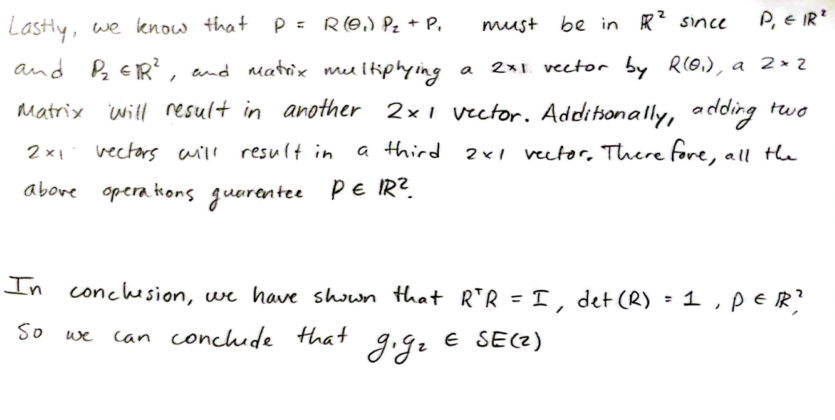 Lastly, we know that P = R(θ₁) P₂ + P₁ must be in ℝ² since P₁ ∈ ℝ²
and P₂ ∈ ℝ², and matrix multiplying a 2×1 vector by R(θ₁), a 2×2
Matrix will result in another 2×1 vector. Additionally, adding two
2×1 vectors will result in a third 2×1 vector. Therefore, all the
above operations guarentee P ∈ ℝ².
In conclusion, we have shown that RᵀR = I, det(R) = 1, p ∈ ℝ².
So we can conclude that g₁g₂ ∈ SE(2)